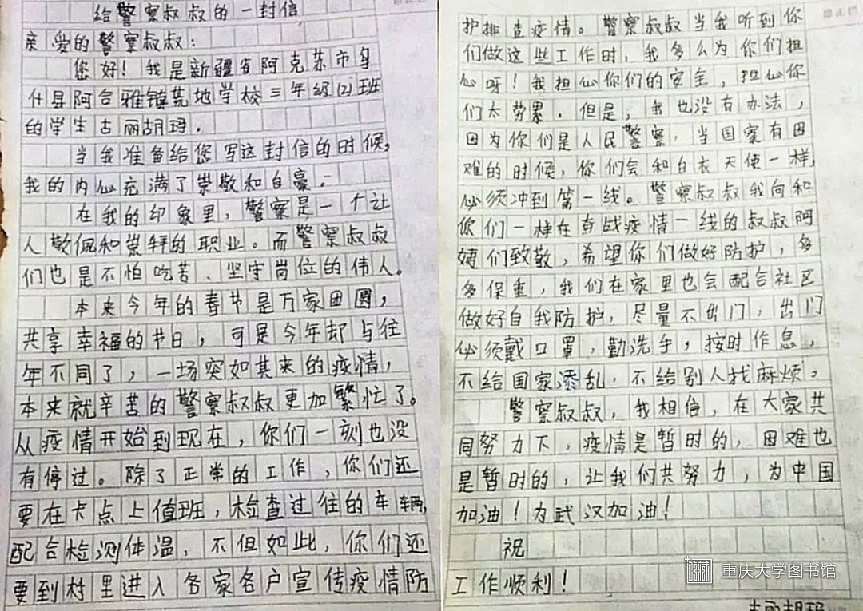 给警察叔叔的一封信
亲爱的警察叔叔：
您好！我是新疆省阿克苏市乌
什县阿合雅镇荒地学校三年级(2)班
的学生古丽胡玛．
当我准备给您写这封信的时候，
我的内心充满了崇敬和自豪．
在我的印象里，警察是一个让
人敬佩和崇拜的职业。而警察叔叔
们也是不怕吃苦、坚守岗位的伟人。
本来今年的春节是万家团圆，
共享幸福的节日，可是今年却与往
年不同了，一场突如其来的疫情，
本来就辛苦的警察叔叔更加繁忙了。
从疫情开始到现在，你们一刻也没
有停过。除了正常的工作，你们还
要在卡点上值班，检查过往的车辆，
配合检测体温，不但如此，你们还
要到村里进入各家各户宣传疫情防
护排查疫情。警察叔叔当我听到你
们做这些工作时，我多么为你们担
心呀！我担心你们的安全，担心你
们太劳累．但是，我也没有办法，
因为你们是人民警察．当国家有困
难的时候，你们会和白衣天使一样，
必须冲到第一线。警察叔叔我向和
你们一样在奋战疫情一线的叔叔阿
姨们致敬，希望你们做好防护，多
多保重，我们在家里也会配合社区
做好自我防护，尽量不出门，出门
必须戴口罩，勤洗手，按时作息，
不给国家添乱，不给别人找麻烦，
警察叔叔，我相信，在大家共
同努力下，疫情是暂时的，困难也
是暂时的，让我们共努力，为中国
加油！为武汉加油！
祝
工作顺利！
重庆大学图书馆